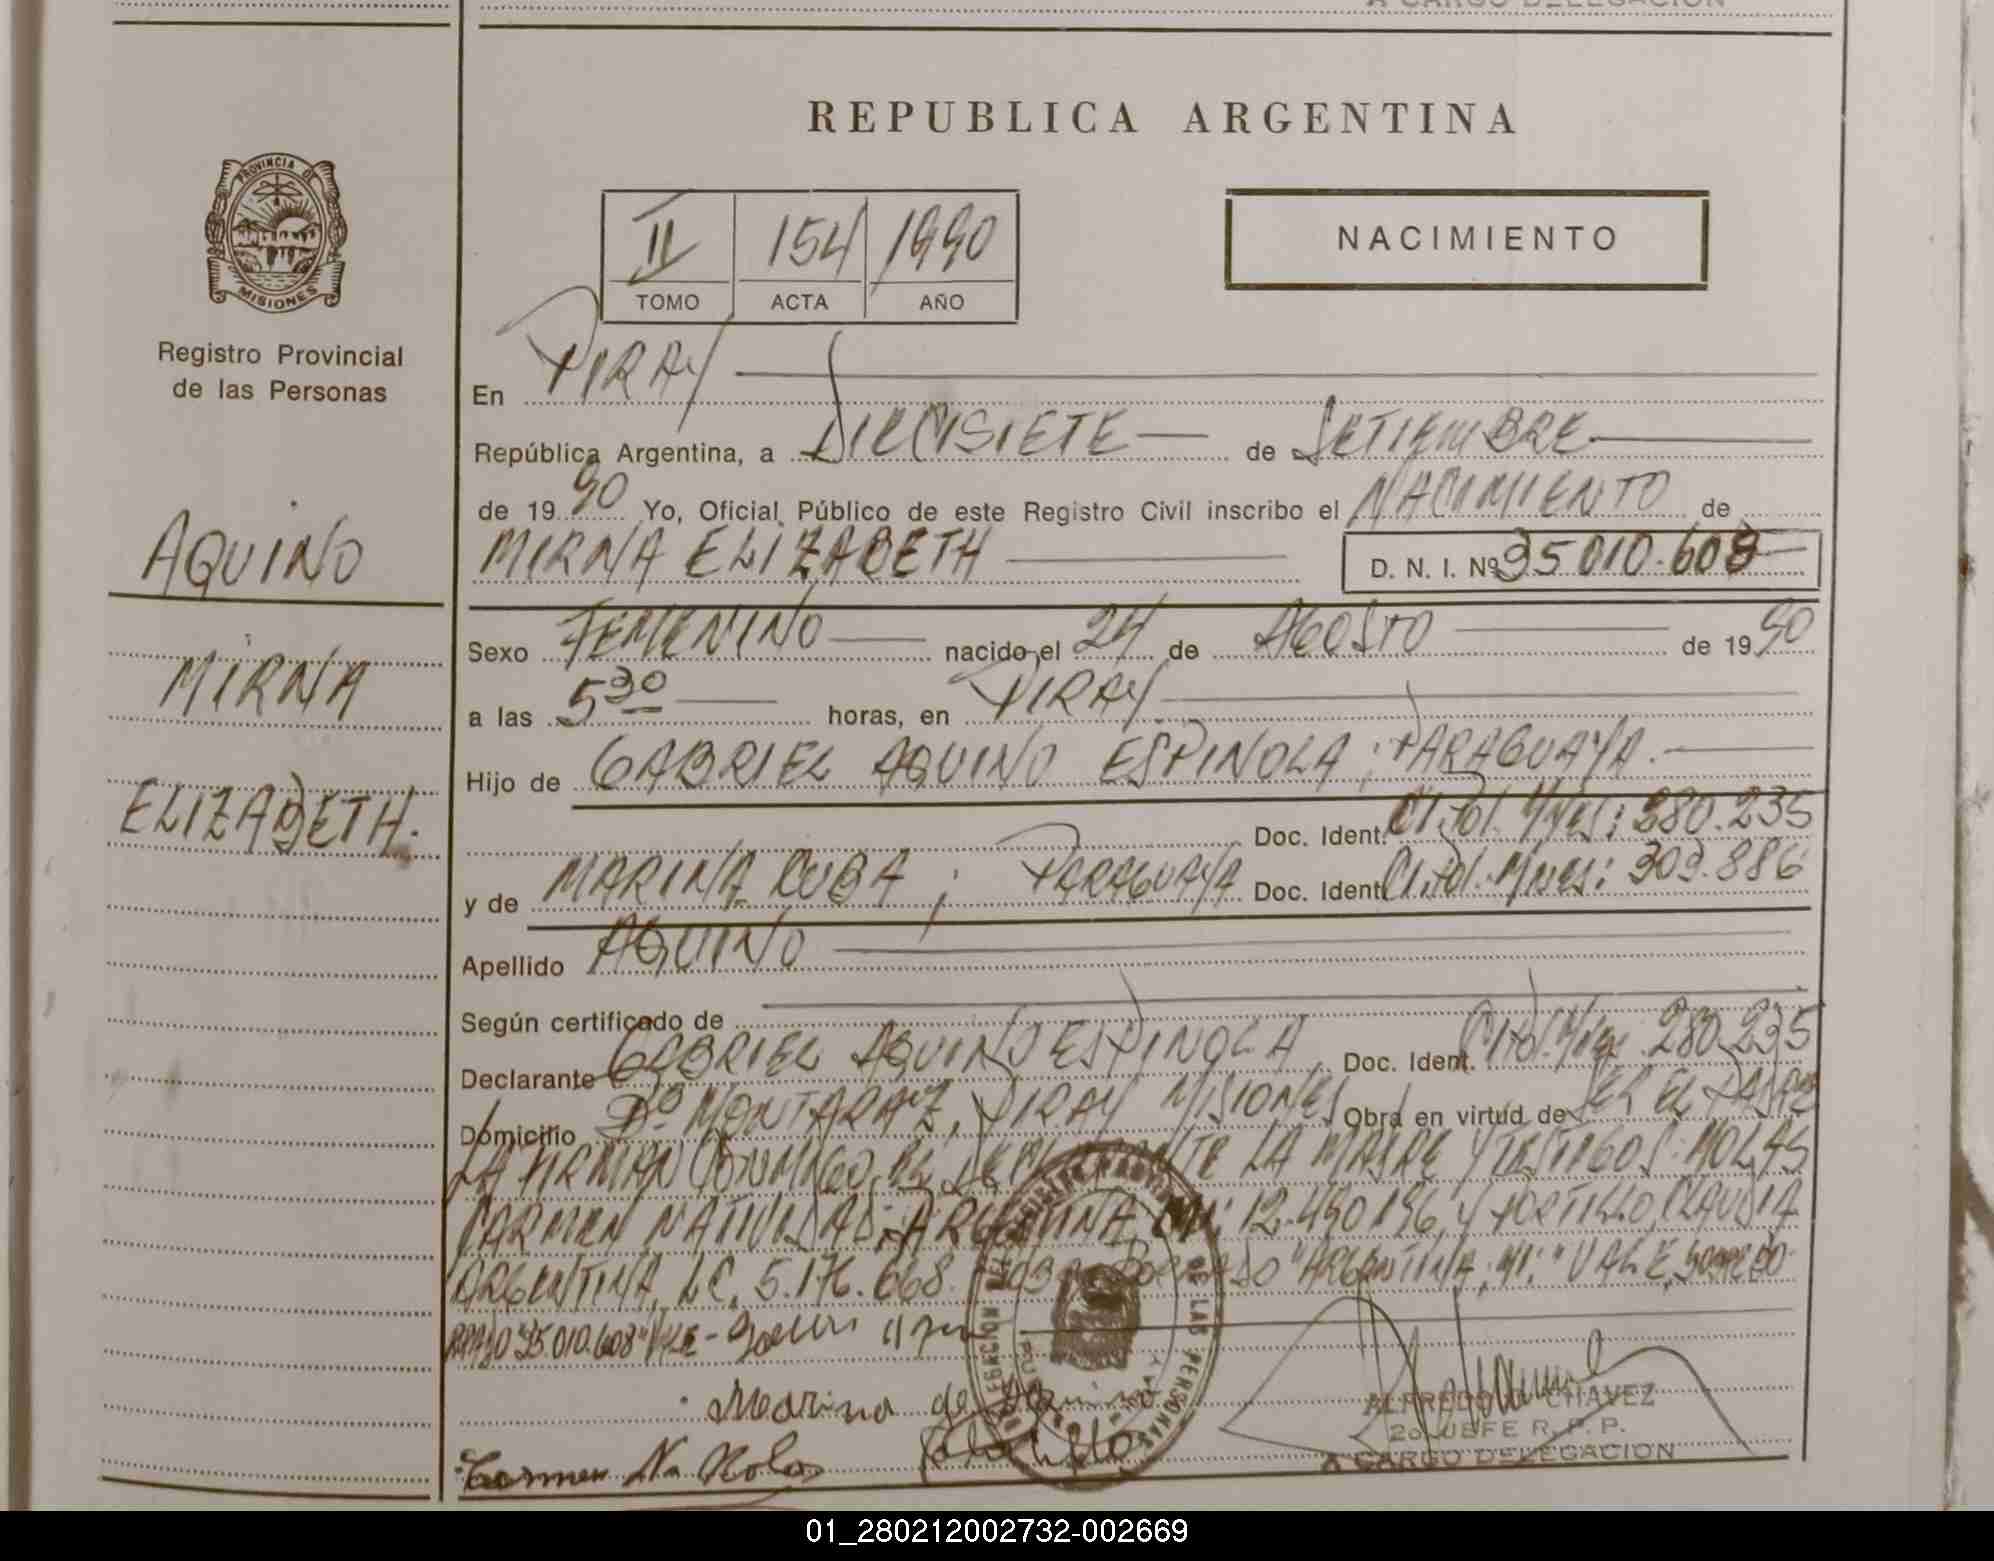 REPUBLICA ARGENTINA
PROVINCIA DE
MISIONES
Registro Provincial
de las Personas
II 154 1990
TOMO ACTA AÑO
NACIMIENTO
En PIRAY
República Argentina, a DIECISIETE de SETIEMBRE
de 1990 Yo, Oficial Público de este Registro Civil inscribo el NACIMIENTO de
AQUINO
MIRNA ELIZABETH D. N. I. Nº 35 010.608
MIRNA
ELIZABETH.
Sexo FEMENINO nacido el 24 de AGOSTO de 1990
a las 5 30 horas, en PIRAY
Hijo de GABRIEL AQUINO ESPINOLA; PARAGUAYA.
Doc. Ident. CI. Pol. Mnes: 280.235
y de MARINA CUBA; PARAGUAYA Doc. Ident. CI. Pol. Mnes: 303.886
Apellido AQUINO
Según certificado de
Declarante GABRIEL AQUINO ESPINOLA Doc. Ident. CI Pol. Mnes 280.235
Domicilio Bº MONTARAZ, PIRAY MISIONES Obra en virtud de SER EL PADRE
LA MADRE Y TESTIGOS: MOLAS
CARMEN NATIVIDAD, ARGENTINA 12.490.196, Y PORTILLO, CLAUDIA
ARGENTINA, LC, 5.176.668. "ARGENTINA, "VALE, SOBRE BO-
RRADO "35.010.608" VALE-
Marina de Aquino
Carmen N. Molas Portillo
ALFREDO CHAVEZ
2o JEFE R. P. P.
A CARGO DELEGACION
01_280212002732-002669